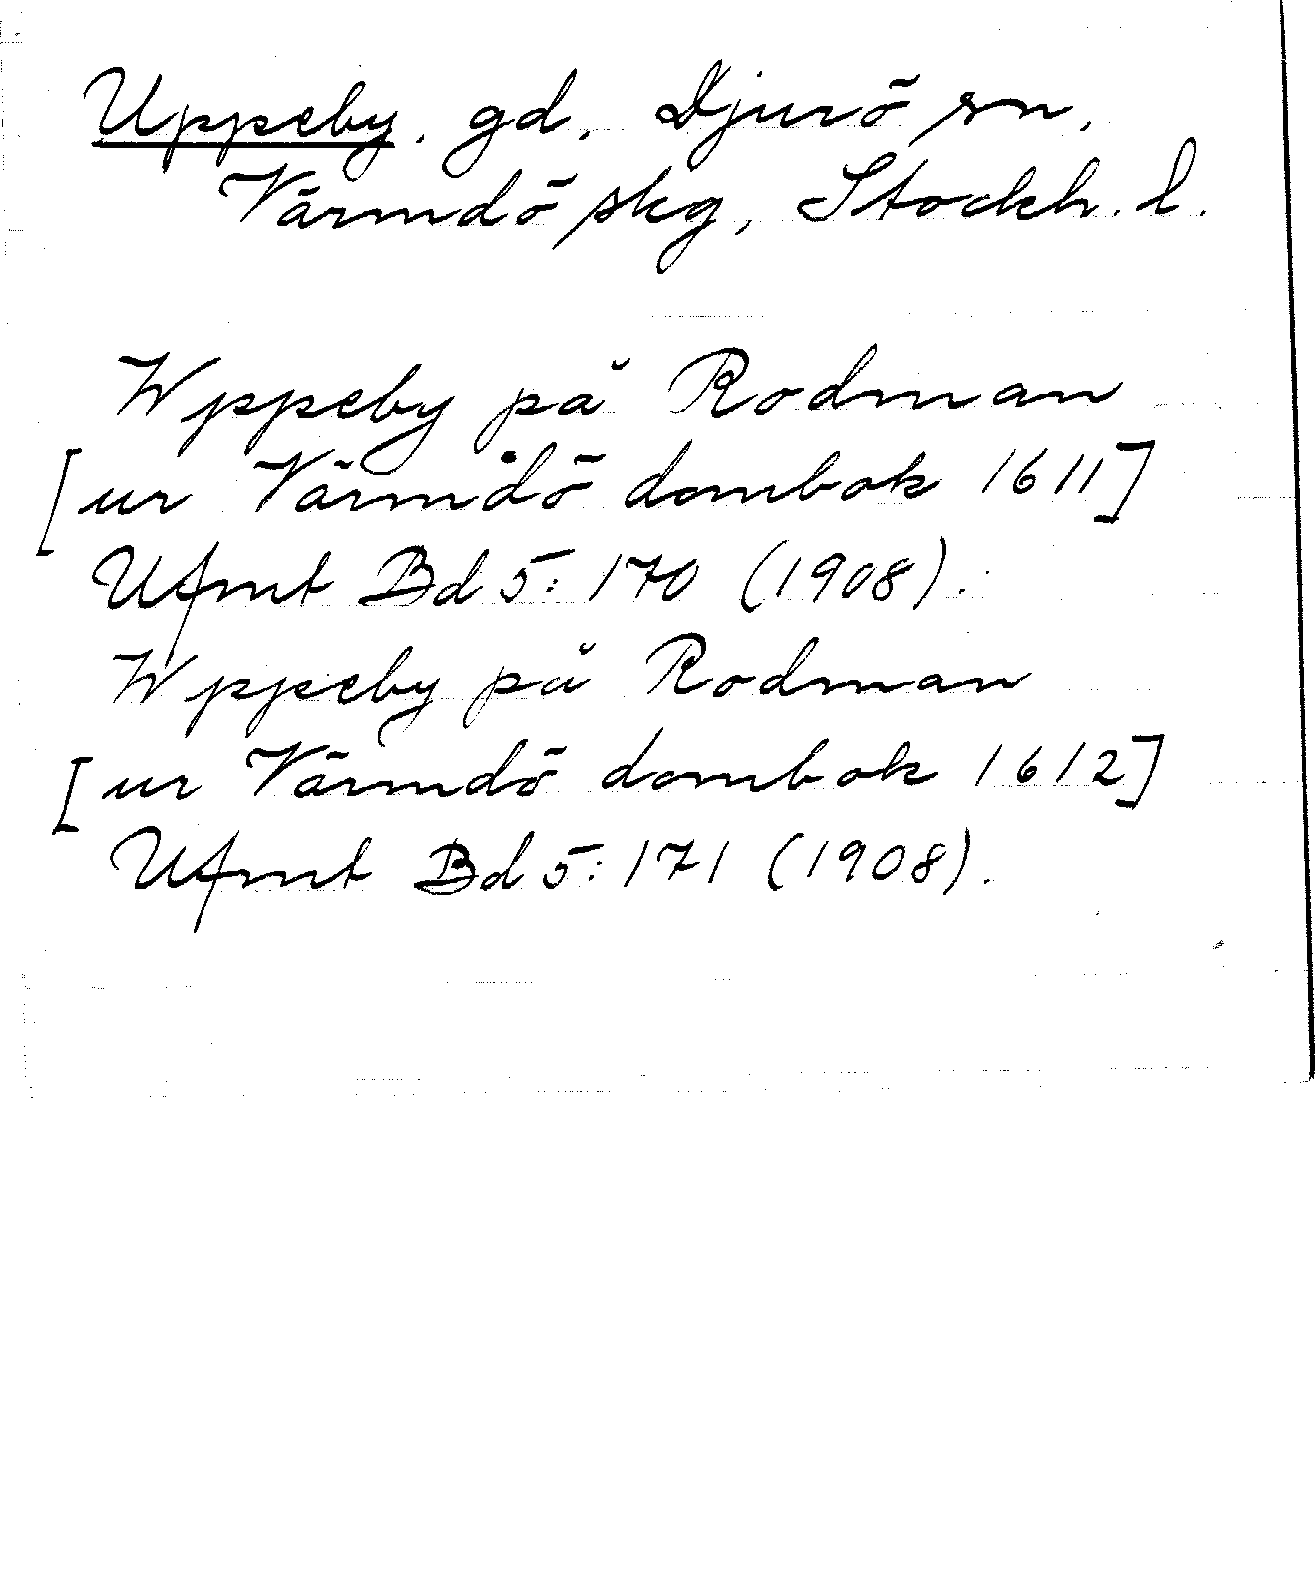 Uppeby, gd, Djurö sn,
Värmdö skg, Stockh. l.
Wppeby på Rodman
[ur Värmdö dombok 1611]
Ufmt Bd 5: 170 (1908).
Wppeby på Rodman
[ur Värmdö dombok 1612]
Ufmt Bd 5: 171 (1908).